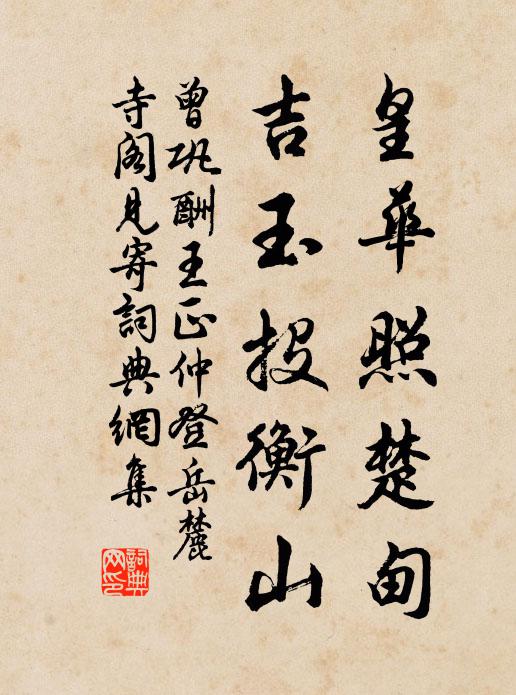 皇華照楚甸
吉玉投衡山
曾巩酬王正仲登岳麓
寺阁見寄詞典網集
詞典
网印